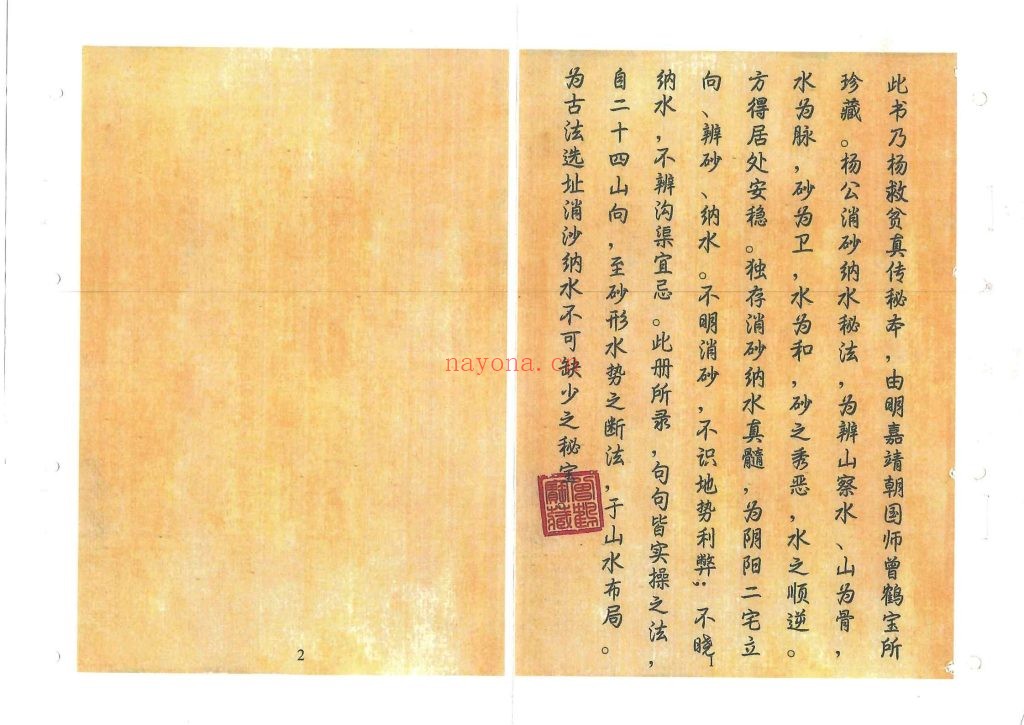 此书乃杨救贫真传秘本，由明嘉靖朝国师曾鹤宝所
珍藏。杨公消砂纳水秘法，为辨山察水、山为骨，
水为脉，砂为卫，水为和，砂之秀恶，水之顺逆。
方得居处安稳。独存消砂纳水真髓，为阴阳二宅立
向、辨砂、纳水。不明消砂，不识地势利弊；不晓
纳水，不辨沟渠宜忌。此册所录，句句皆实操之法，
自二十四山向，至砂形水势之断法，于山水布局。
为古法选址消沙纳水不可缺少之秘宝
nayona.cn
2